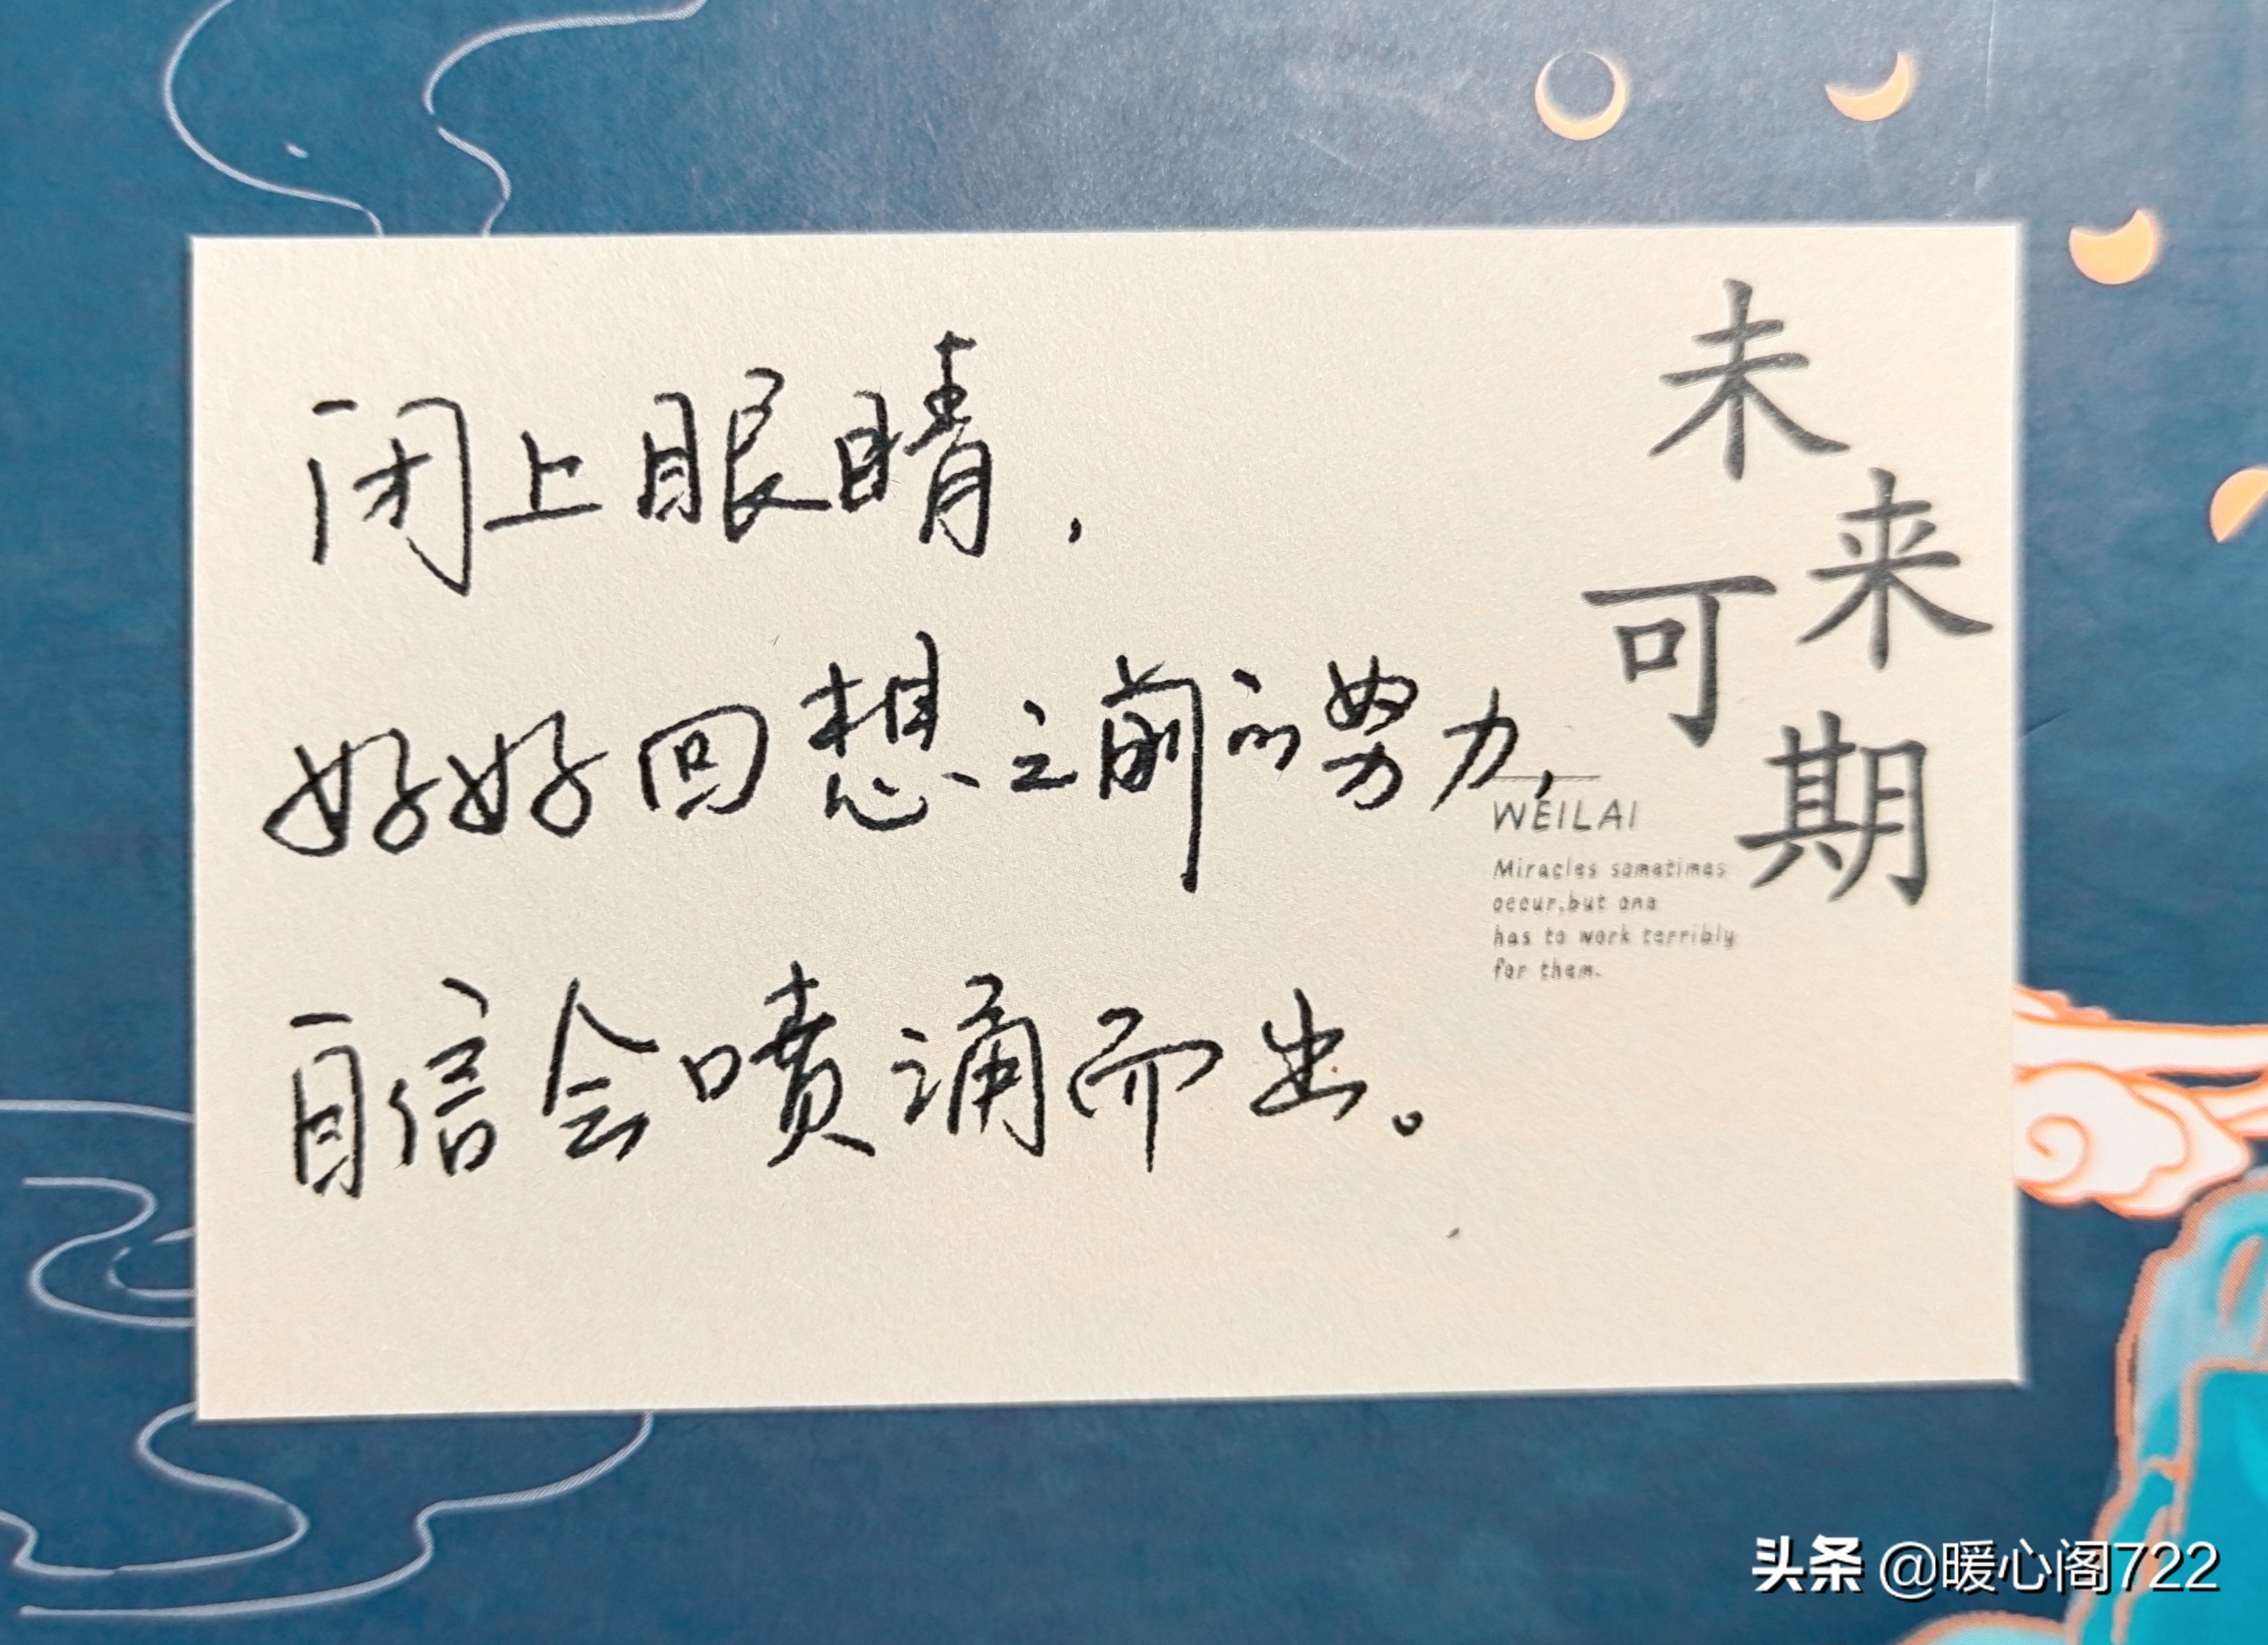 闭上眼睛，
好好回想之前的努力，
自信会喷涌而出。
未来可期
WEILAI
Miracles sometimes
occur,but one
has to work terribly
for them.
头条 @暖心阁722